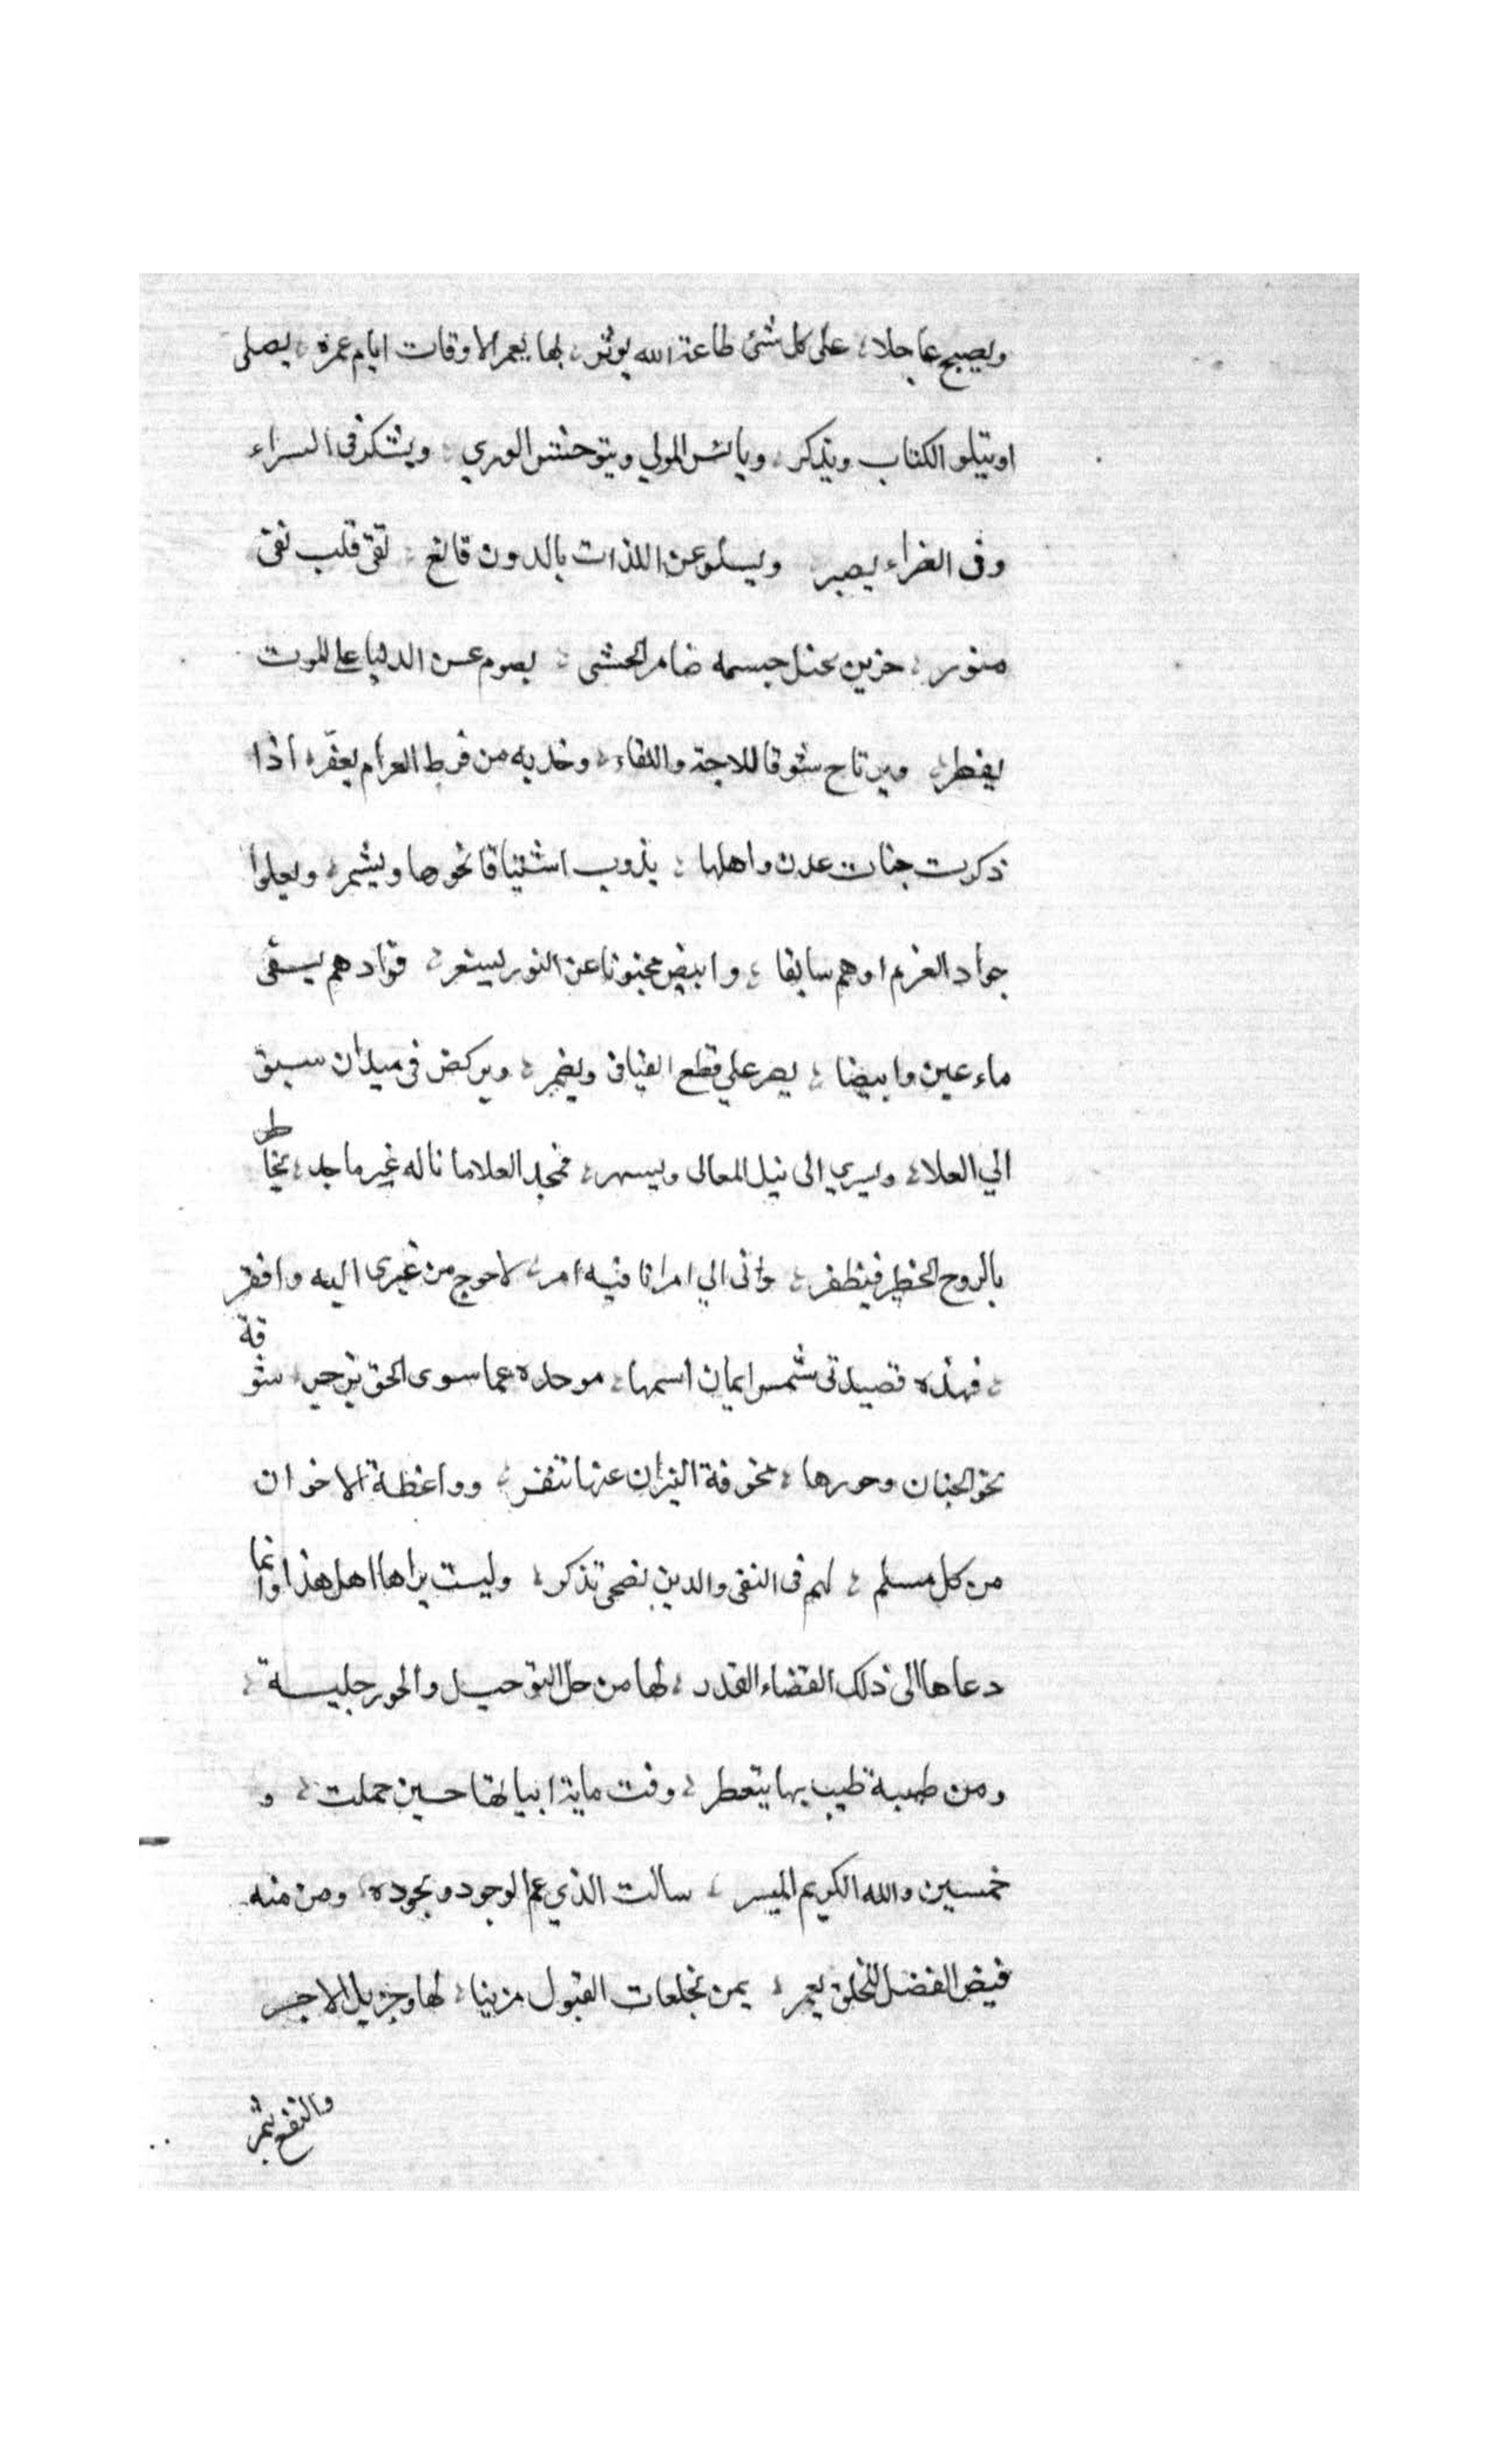 ويصبح عاجلا، على كل شئ طاعة الله يوثر، بها يعمر الاوقات ايام عمره، يصلى
او يتلو الكتاب ويذكر، ويانس المولي ويتوحش الوري، ويشكر فى السراء
وفى الضراء يصبر ويسلو عن اللذات بالدون قانع، تقى قلب نقى
منور، حزين نحيل جسمه ضامر الحشى، يصوم عن الدنيا على الموت
يفطر، ويرتاح شوقا للاحبة واللقاء، وخديه من فرط الغرام يعفّر، اذا
ذكرت جنات عدن واهلها، يذوب اشتياقا نحوها ويشمر، ويعلوا
جواد العزم ادهم سابقا، وابيض مجنونا عن النور يسفر، فوادهم يسقى
ماء عين وابيضا، يصر علي قطع الفيافى ويضمر، ويركض فى ميدان سبق
الي العلا، ويسري الى نيل المعالى ويسهر، فمجد العلا ما ناله غير ماجد، يخاطر
بالروح الخطير فيظفر، وانى الي امرانا فيه امر، لاحوج من غيرى اليه وافقر
، فهذه قصيدتى شمس ايمان اسمها، موحده عما سوى الحق تزجر، شوقة
نحو الجنان وحورها، مخوفة النيران عنها تنفر، وواعظة الاخوان
من كل مسلم، لهم فى التقى والدين نصحى تذكر، وليست يراها اهل هذا وانما
دعاها الى ذلك القضاء القدر، لها من حل التوحيد والحور حلية،
ومن طيبة طيب بها يتعطر، وفت ماية ابياتها حسين حملت، و
خمسين والله الكريم الميسر، سالت الذي عم الوجود وبجوده، ومن منه
فيض الفضل للخلق يعمر، يمن بخلعات القبول مزينا، لها وجزيل الاجر
والنفع يثمر